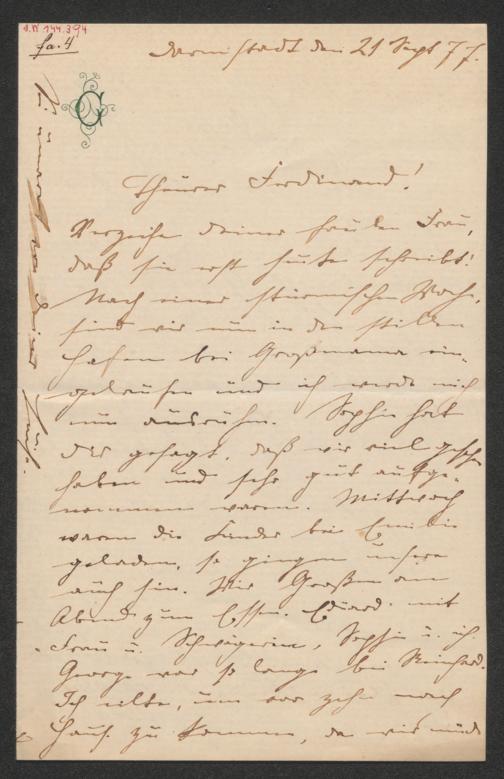 J.N 144.394
fa. 4
Darmstadt den 21 Sept 77.
G
Theurer Ferdinand!
Verzeihe deiner faulen Frau,
daß sie erst heute schreibt!
Nach einer stürmischen Woche,
sind wir nun in den stillen
Hafen bei Großmama ein-
gelaufen und ich werde mich
nun ausruhen. Sophie hat
dir gesagt, daß wir viel gesehen
haben und sehr gut aufge-
nommen waren. Mittwoch
waren die Kinder bei Emilie
geladen, so gingen unsere
auch hin. Wir Großen am
Abend zum Essen. Eduard mit
Frau u. Schwägerin, Sophie u. ich.
George war so lange bei Reinhard.
Ich eilte, um vor zehn nach
Haus zu kommen, da wir müde